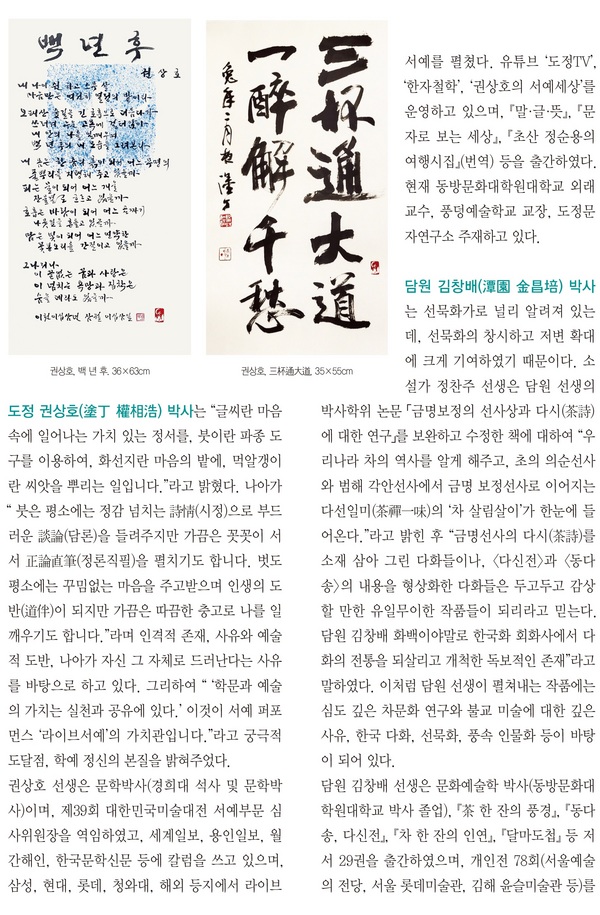 백 년 후
권상호
三杯通大道
一醉解千愁
권상호, 백 년 후, 36×63cm
권상호, 三杯通大道, 35×55cm
도정 권상호(塗丁 權相浩) 박사는 “글씨란 마음
속에 일어나는 가치 있는 정서를, 붓이란 파종 도
구를 이용하여, 화선지란 마음의 밭에, 먹알갱이
란 씨앗을 뿌리는 일입니다.”라고 밝혔다. 나아가
“ 붓은 평소에는 정감 넘치는 詩情(시정)으로 부드
러운 談論(담론)을 들려주지만 가끔은 꼿꼿이 서
서 正論直筆(정론직필)을 펼치기도 합니다. 벗도
평소에는 꾸밈없는 마음을 주고받으며 인생의 도
반(道伴)이 되지만 가끔은 따끔한 충고로 나를 일
깨우기도 합니다.”라며 인격적 존재, 사유와 예술
적 도반, 나아가 자신 그 자체로 드러난다는 사유
를 바탕으로 하고 있다. 그리하여 “ ‘학문과 예술
의 가치는 실천과 공유에 있다.’ 이것이 서예 퍼포
먼스 ‘라이브서예’의 가치관입니다.”라고 궁극적
도달점, 학예 정신의 본질을 밝혀주었다.
권상호 선생은 문학박사(경희대 석사 및 문학박
사)이며, 제39회 대한민국미술대전 서예부문 심
사위원장을 역임하였고, 세계일보, 용인일보, 월
간해인, 한국문학신문 등에 칼럼을 쓰고 있으며,
삼성, 현대, 롯데, 청와대, 해외 등지에서 라이브
서예를 펼쳤다. 유튜브 ‘도정TV’,
‘한자철학’, ‘권상호의 서예세상’를
운영하고 있으며, 『말·글·뜻』, 『문
자로 보는 세상』, 『초산 정순용의
여행시집』(번역) 등을 출간하였다.
현재 동방문화대학원대학교 외래
교수, 풍덩예술학교 교장, 도정문
자연구소 주재하고 있다.
담원 김창배(潭園 金昌培) 박사
는 선묵화가로 널리 알려져 있는
데, 선묵화의 창시하고 저변 확대
에 크게 기여하였기 때문이다. 소
설가 정찬주 선생은 담원 선생의
박사학위 논문 「금명보정의 선사상과 다시(茶詩)
에 대한 연구」를 보완하고 수정한 책에 대하여 “우
리나라 차의 역사를 알게 해주고, 초의 의순선사
와 범해 각안선사에서 금명 보정선사로 이어지는
다선일미(茶禪一味)의 ‘차 살림살이’가 한눈에 들
어온다.”라고 밝힌 후 “금명선사의 다시(茶詩)를
소재 삼아 그린 다화들이나, 〈다신전〉과 〈동다
송〉의 내용을 형상화한 다화들은 두고두고 감상
할 만한 유일무이한 작품들이 되리라고 믿는다.
담원 김창배 화백이야말로 한국화 회화사에서 다
화의 전통을 되살리고 개척한 독보적인 존재”라고
말하였다. 이처럼 담원 선생이 펼쳐내는 작품에는
심도 깊은 차문화 연구와 불교 미술에 대한 깊은
사유, 한국 다화, 선묵화, 풍속 인물화 등이 바탕
이 되어 있다.
담원 김창배 선생은 문화예술학 박사(동방문화대
학원대학교 박사 졸업), 『茶 한 잔의 풍경』, 『동다
송, 다신전』, 『차 한 잔의 인연』, 『달마도첩』 등 저
서 29권을 출간하였으며, 개인전 78회(서울예술
의 전당, 서울 롯데미술관, 김해 윤슬미술관 등)를